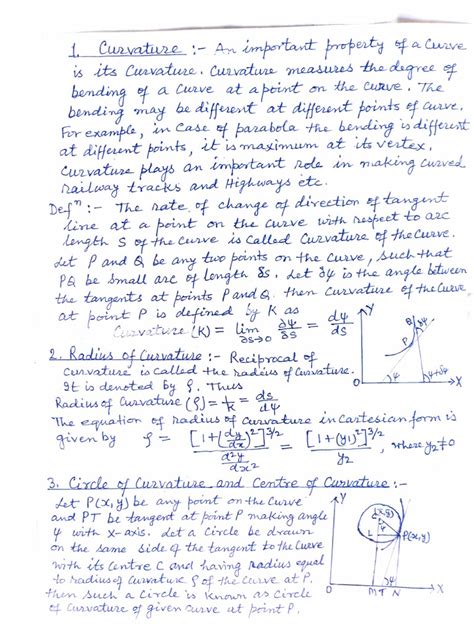 1. Curvature :- An important property of a curve
is its Curvature. Curvature measures the degree of
bending of a curve at a point on the curve. The
bending may be different at different points of curve.
For example, in case of parabola the bending is different
at different points, it is maximum at its vertex.
Curvature plays an important role in making curved
railway tracks and Highways etc.
Defⁿ :- The rate of change of direction of tangent
line at a point on the curve with respect to arc
length S of the curve is called Curvature of the curve.
Let P and Q be any two points on the curve, such that
PQ be small arc of length δs. Let ∂ψ is the angle between
the tangents at points P and Q. then Curvature of the curve
at point P is defined by K as
Curvature (K) = lim ∂s→0 ∂ψ/∂s = dψ/ds
Y
P
δψ
ψ
ψ+δψ
O
X
2. Radius of Curvature :- Reciprocal of
curvature is called the radius of curvature.
It is denoted by ρ. Thus
Radius of Curvature (ρ) = 1/K = ds/dψ
The equation of radius of curvature in Cartesian form is
given by ρ = [1+(dy/dx)²]^3/2 / d²y/dx² = [1+(y1)²]^3/2 / y2, where y2≠0
3. Circle of Curvature and Centre of Curvature :-
Let P(x,y) be any point on the curve
and PT be tangent at point P making angle
ψ with x-axis. Let a circle be drawn
on the same side of the tangent to the curve
with its centre C and having radius equal
to radius of curvature ρ of the curve at P.
then such a circle is known as Circle
of Curvature of given curve at point P.
Y
C
ψ
L
P(x,y)
ψ
O
M T N
X